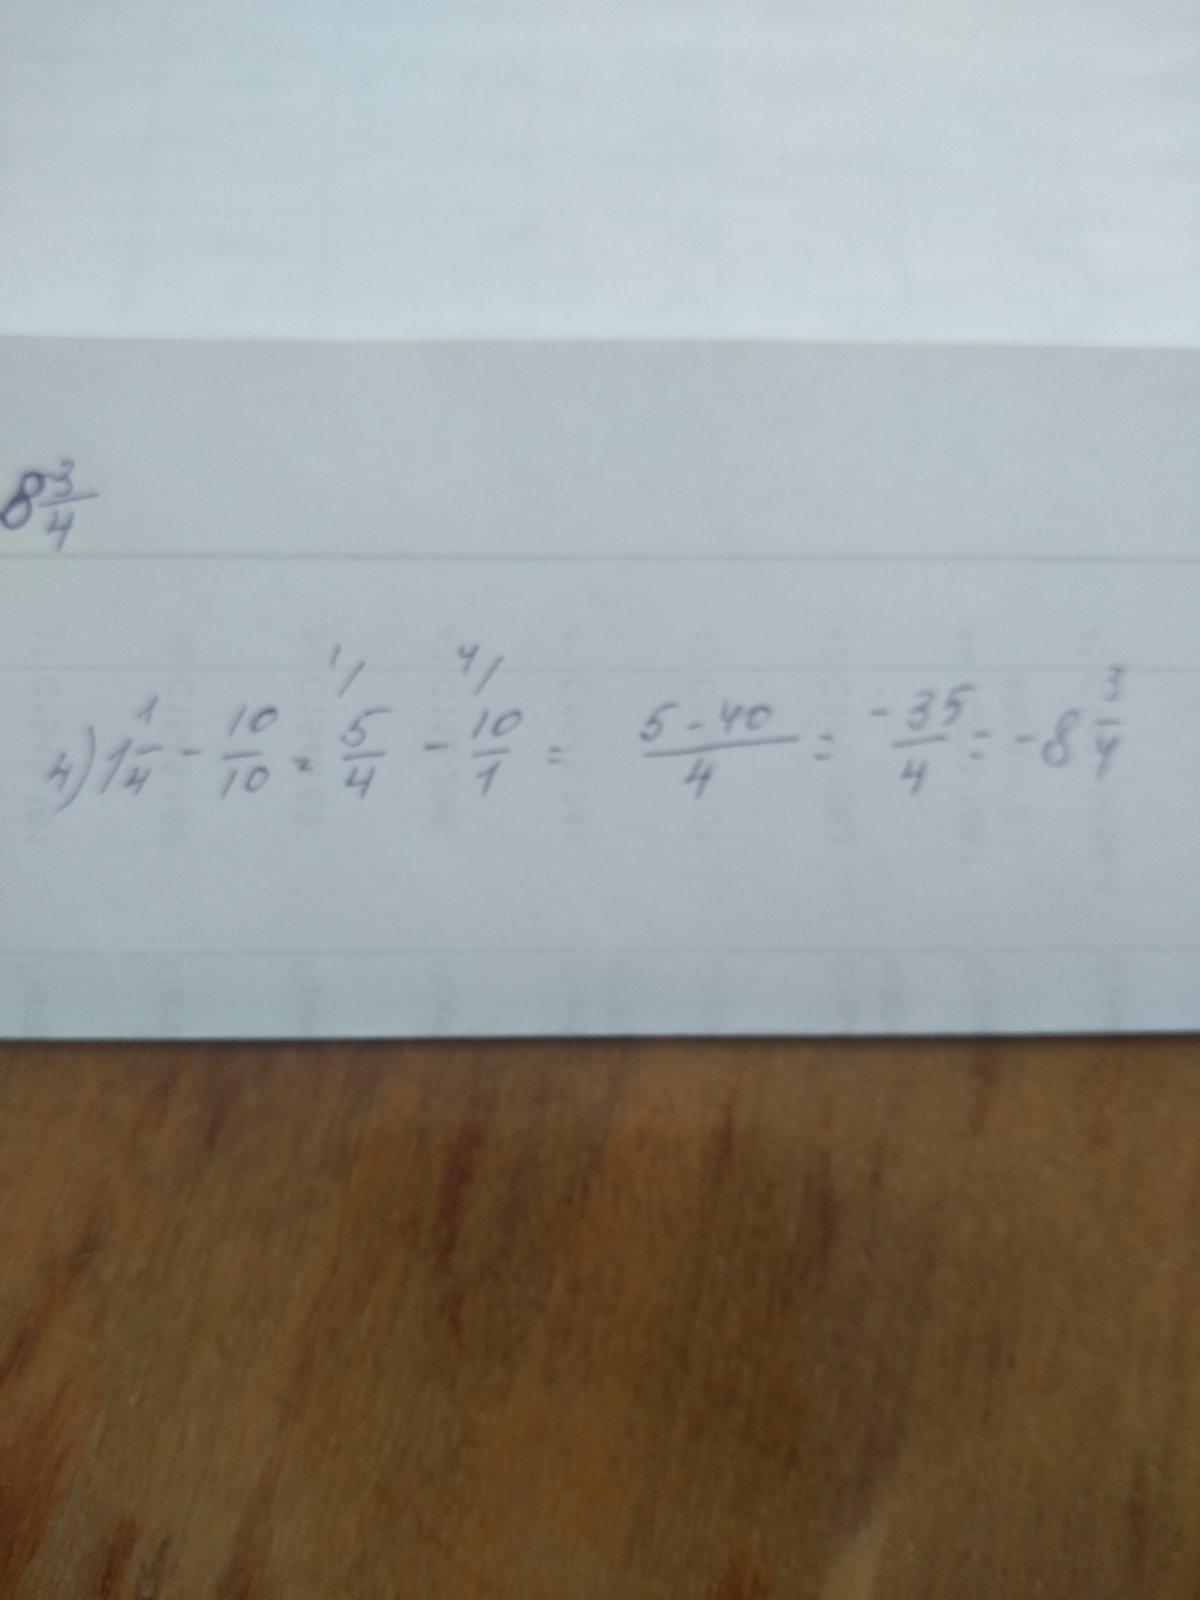 8 3/4
4) 1 1/4 - 10/10 = 5/4 1/ - 10/1 4/ = 5-40/4 = -35/4 = -8 3/4